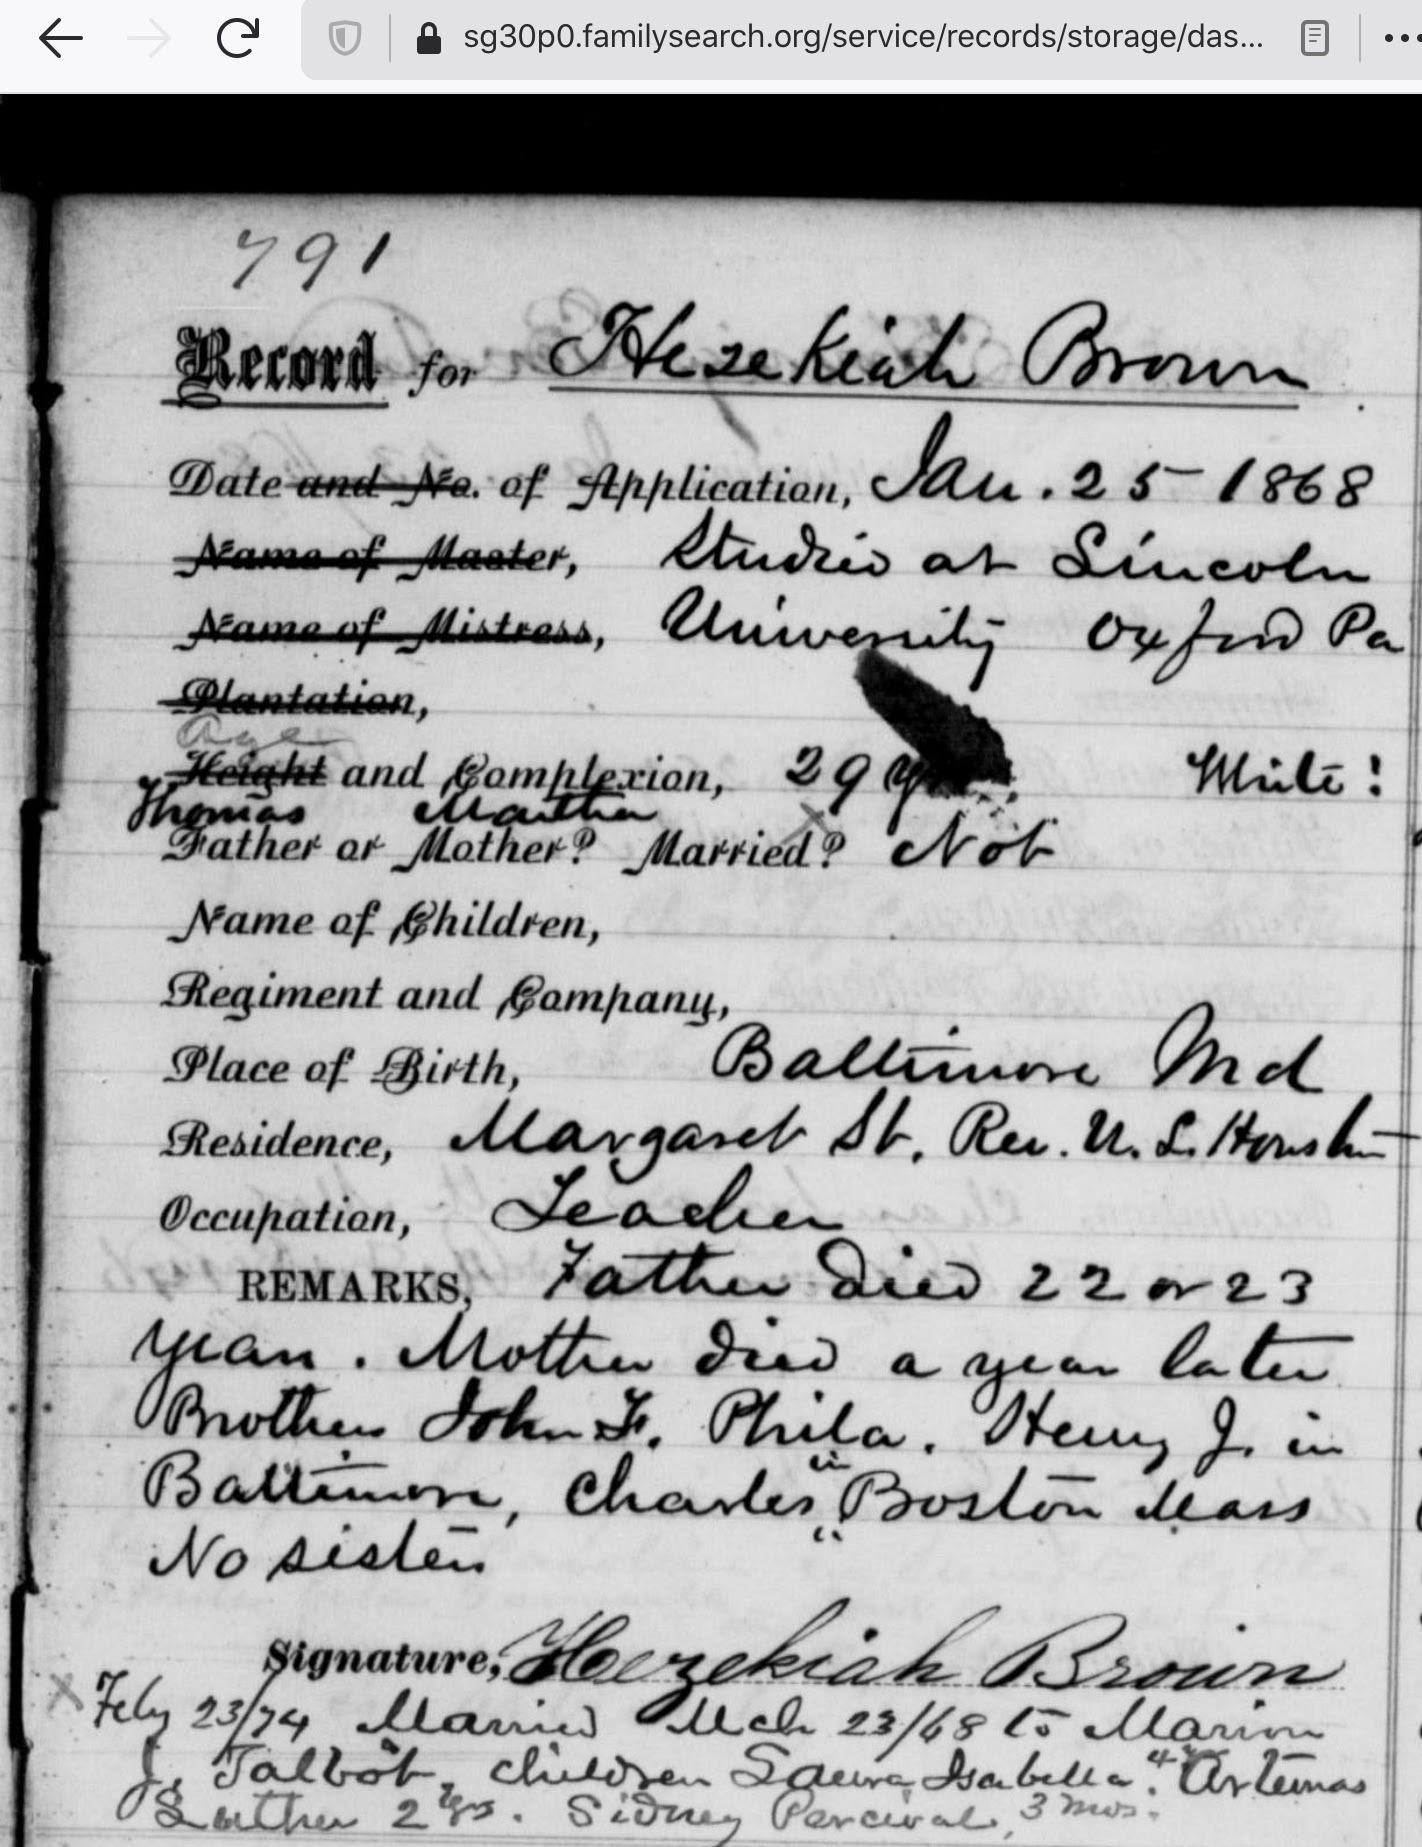 sg30p0.familysearch.org/service/records/storage/das...
791
Record for Hezekiah Brown
Date and No. of Application, Jan. 25 1868
Name of Master, Studied at Lincoln
Name of Mistress, University Oxford Pa
Plantation,
Age
Height and Complexion, 29 yrs. White!
Thomas Martha
Father or Mother? Married? Not
Name of Children,
Regiment and Company,
Place of Birth, Baltimore Md
Residence, Margaret St. Rev. U. L. Houston
Occupation, Teacher
REMARKS, Father died 22 or 23
years. Mother died a year later
Brothers John F. Phila. Henry J. in
Baltimore, Charles in Boston Mass
No sisters
Signature, Hezekiah Brown
Feby 23/74 Married Mch 23/68 to Marion
J. Talbot, children Laura Isabella 4, Artemas
Luther 2 yrs. Sidney Percival, 3 mos.